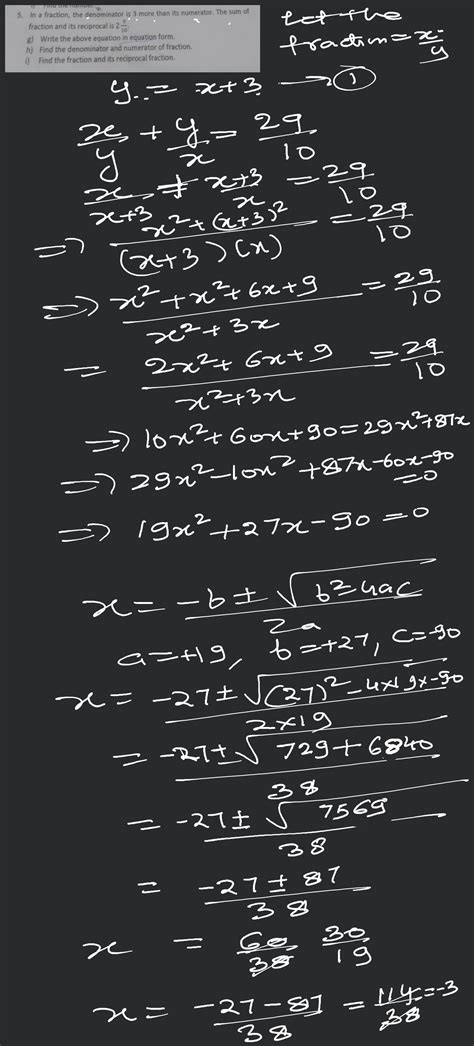 5. In a fraction, the denominator is 3 more than its numerator. The sum of
fraction and its reciprocal is 2 9/10
g) Write the above equation in equation form.
h) Find the denominator and numerator of fraction.
i) Find the fraction and its reciprocal fraction.
Let the
fraction = x/y
y = x+3 → ①
x/y + y/x = 29/10
x/x+3 + x+3/x = 29/10
⇒ x² + (x+3)² / (x+3)(x) = 29/10
⇒ x² + x² + 6x + 9 / x² + 3x = 29/10
= 2x² + 6x + 9 / x² + 3x = 29/10
⇒ 10x² + 60x + 90 = 29x² + 87x
⇒ 29x² - 10x² + 87x - 60x - 90 = 0
⇒ 19x² + 27x - 90 = 0
x = -b ± √b² - 4ac / 2a
a = +19, b = +27, c = -90
x = -27 ± √(27)² - 4×19×-90 / 2×19
= -27 ± √729 + 6840 / 38
= -27 ± √7569 / 38
= -27 ± 87 / 38
x = 60/38 30/19
x = -27 - 87 / 38 = 114/38 = -3